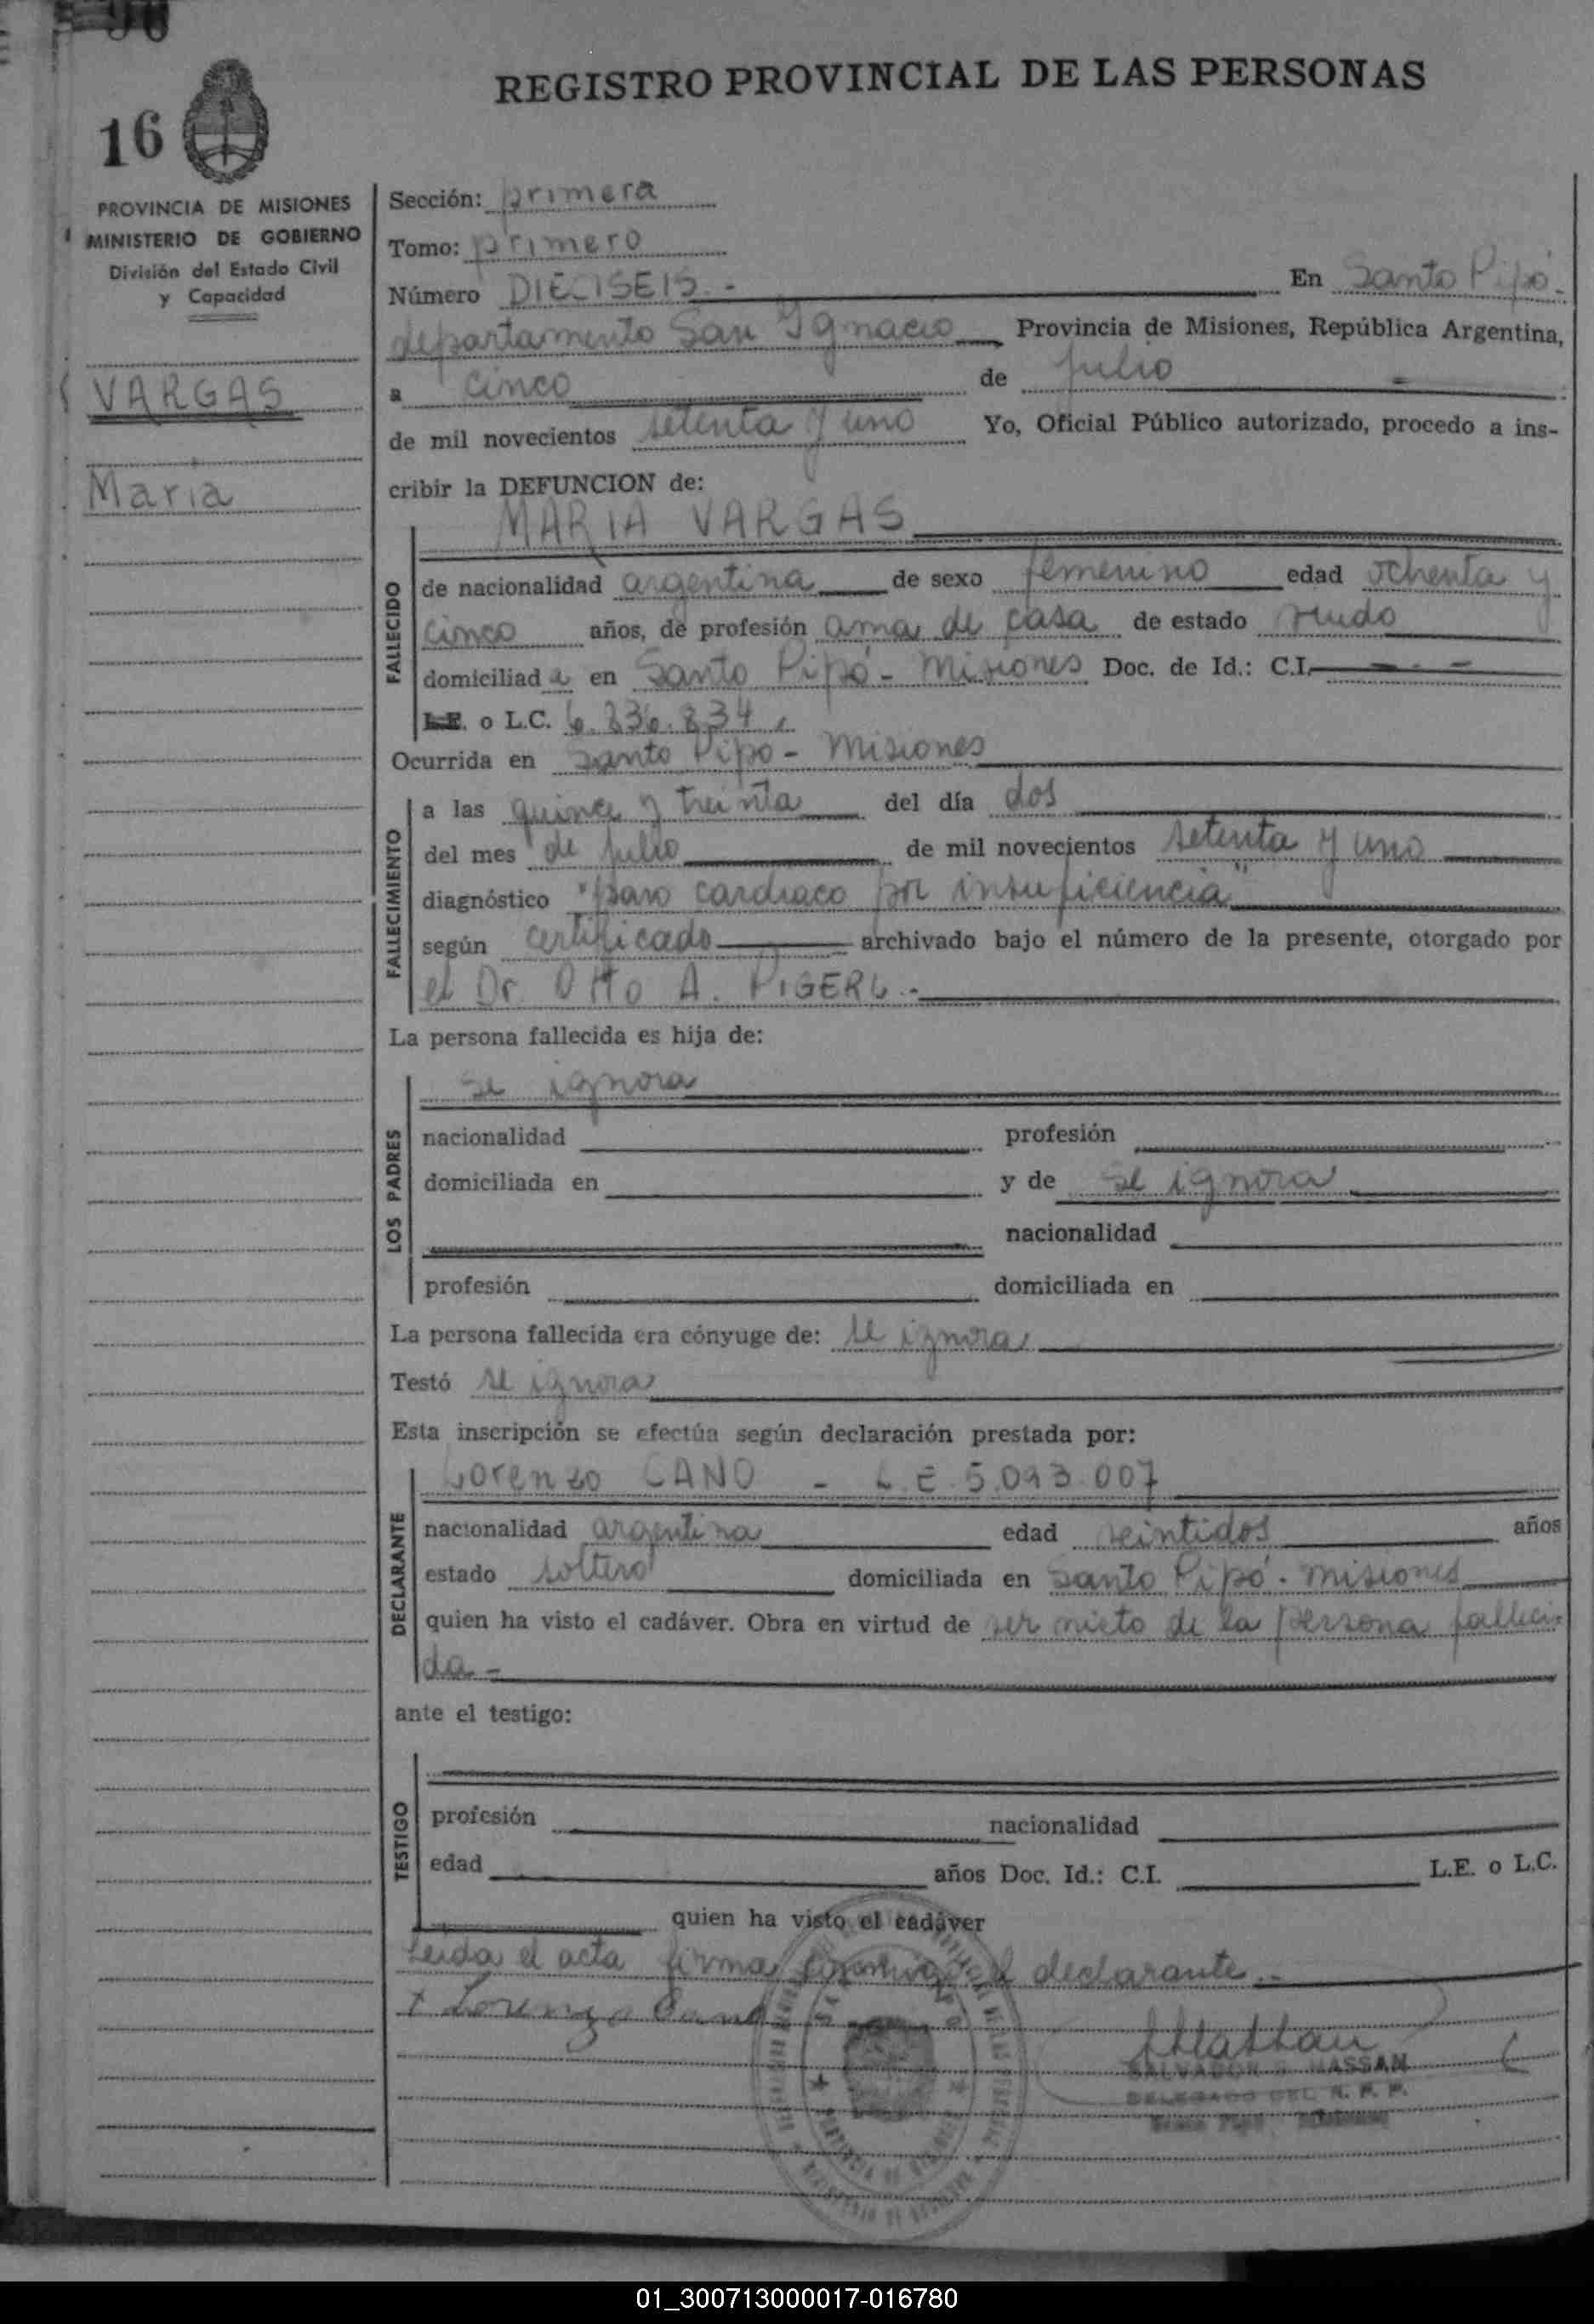 96
16
REGISTRO PROVINCIAL DE LAS PERSONAS
PROVINCIA DE MISIONES
MINISTERIO DE GOBIERNO
División del Estado Civil
y Capacidad
VARGAS
Maria
Sección: primera
Tomo: primero
Número DIECISEIS.- En Santo Pipó.-
departamento San Ignacio Provincia de Misiones, República Argentina,
a cinco de julio
de mil novecientos setenta y uno Yo, Oficial Público autorizado, procedo a ins-
cribir la DEFUNCION de:
MARIA VARGAS
FALLECIDO
de nacionalidad argentina de sexo femenino edad ochenta y
cinco años, de profesión ama de casa de estado viudo
domiciliad a en Santo Pipó - Misiones Doc. de Id.: C.I. - - -
L.E. o L.C. 6.836.834
Ocurrida en Santo Pipo - Misiones
FALLECIMIENTO
a las quince y treinta del día dos
del mes de julio de mil novecientos setenta y uno
diagnóstico "paro cardiaco por insuficiencia"
según certificado archivado bajo el número de la presente, otorgado por
el Dr. Otto A. PIGERL.-
La persona fallecida es hija de:
LOS PADRES
se ignora
nacionalidad profesión
domiciliada en y de se ignora
nacionalidad
profesión domiciliada en
La persona fallecida era cónyuge de: se ignora
Testó se ignora
Esta inscripción se efectúa según declaración prestada por:
DECLARANTE
Lorenzo CANO - L.E. 5.093.007
nacionalidad argentina edad veintidos años
estado soltero domiciliada en Santo Pipó - Misiones
quien ha visto el cadáver. Obra en virtud de ser nieto de la persona falleci-
da -
ante el testigo:
TESTIGO
profesión nacionalidad
edad años Doc. Id.: C.I. L.E. o L.C.
quien ha visto el cadáver
Leida el acta firma conmigo el declarante.-
x Lorenzo Cano
SALVADOR S. HASSAN
DELEGADO DEL R. P. P.
01_300713000017-016780